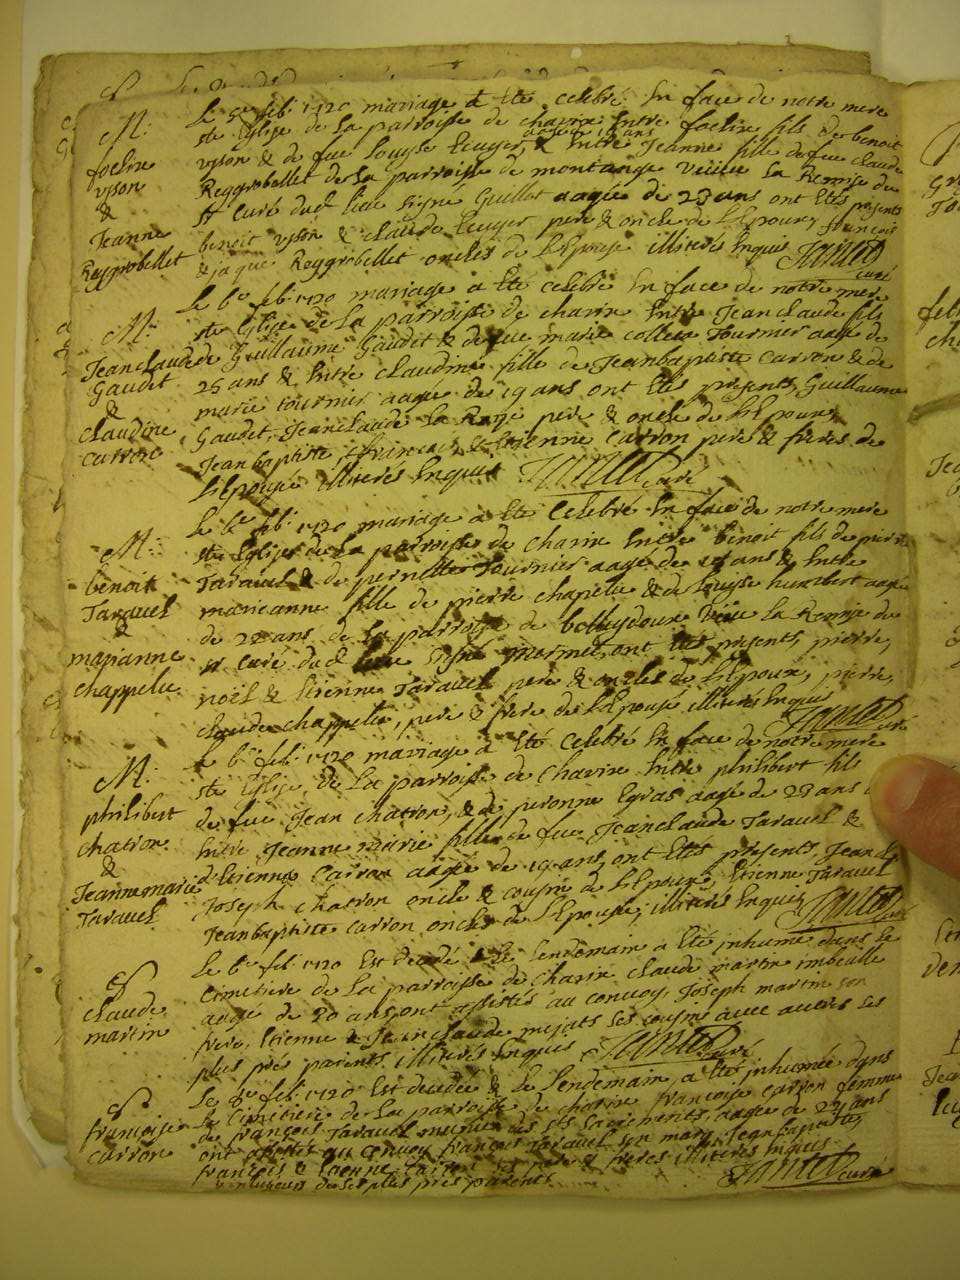 M.
foelin
vison
&
Jeanne
Reygrobellet
Le 5e feb. 1720 mariage a été celebré En face de notre mere
ste Eglise de La parroisse de charix Entre foelix fils de benoit
vison & de feue Louyse Ecuyer, & Entre Jeanne fille de feu claude
aagé de ans
Reygrobellet de La parroisse de montange Veüe La Remise du
Sr curé dud. lieu signé Guillot aagée de 23 ans ont Etés presents
benoit vison & claude Ecuyer pere & oncle de L'Epoux, francois
& jaque Reygrobellet oncles de L'Epouse illiterés Enquis Jantet
curé
M.
Jean claude
Gaudet
&
claudine
carron
Le 6e feb. 1720 mariage a été celebré En face de notre mere
ste Eglise de La parroisse de charix Entre Jean claude fils
de Guillaume Gaudet & de feue marie collett Tournier aagé de
25 ans & Entre claudine fille de Jeanbaptiste carron & de
marie tournier aagée de 19 ans ont Etés presents, Guillaume
Gaudet, Jeanclaude La pere & oncle de L'Epoux,
Jeanbaptiste francois & Etienne carron pere & freres de
L'Epouse illiterés Enquis Jantet curé
M.
benoit
Taravel
&
marianne
chappelu
Le 6e feb. 1720 mariage a été Celebré En face de notre mere
ste Eglise de La parroisse de Charix Entre benoit fils de pierre
Taravel & de pernette Tournier aagé de ans & Entre
marieanne fille de pierre chapelu & de Louyse humbert aagée
de 22 ans de La parroisse de belleydoux Veüe La Remise du
Sr curé dud. lieu signé mermet, ont Etés presents, pierre,
noël & Etienne Taravel pere & oncles de L'Epoux, pierre,
claude chappelu, pere & frere de L'Epouse illiterés Enquis
Jantet curé
M.
philibert
chatron
&
Jeannemarie
Taravel
Le 6e feb. 1720 mariage a été Celebré En face de notre mere
ste Eglise, de La parroisse de Charix Entre philibert fils
de feu Jean chatron, & de peronne Egras aagé de 23 ans
Entre Jeanne marie fille de feu Jeanclaude Taravel &
d'Etienne Carron aagée de 19 ans, ont Etés presents, Jean &
Joseph chatron oncle & cousin de L'Epoux, Etienne Taravel
Jeanbaptiste carron oncles de L'Epouse, illiterés Enquis Jantet curé
S
claude
martin
Le 6e feb. 1720 Est decedé & Le Lendemain a été inhumé dans Le
Cimetiere de La parroisse de Charix claude martin imbecille
aagé de 20 ans, ont assistés au convoy, Joseph martin son
frere, Etienne & Jeanclaude mejats ses cousins avec autres ses
plus prés parents illiterés Enquis Jantet curé
S.
francoise
carron
Le 8e feb. 1720 Est decedée & Le Lendemain, a été inhumée dans
Le Cimetiere de La parroisse de charix francoise carron femme
de francois Taravel munie des sts sacrements, aagée de 27 ans
ont assistés au convoy francois Taravel son mary Jeanbaptiste,
francois & Etienne carron ses pere & freres illiterés Enquis
& plusieurs de ses plus prés parents Jantet curé